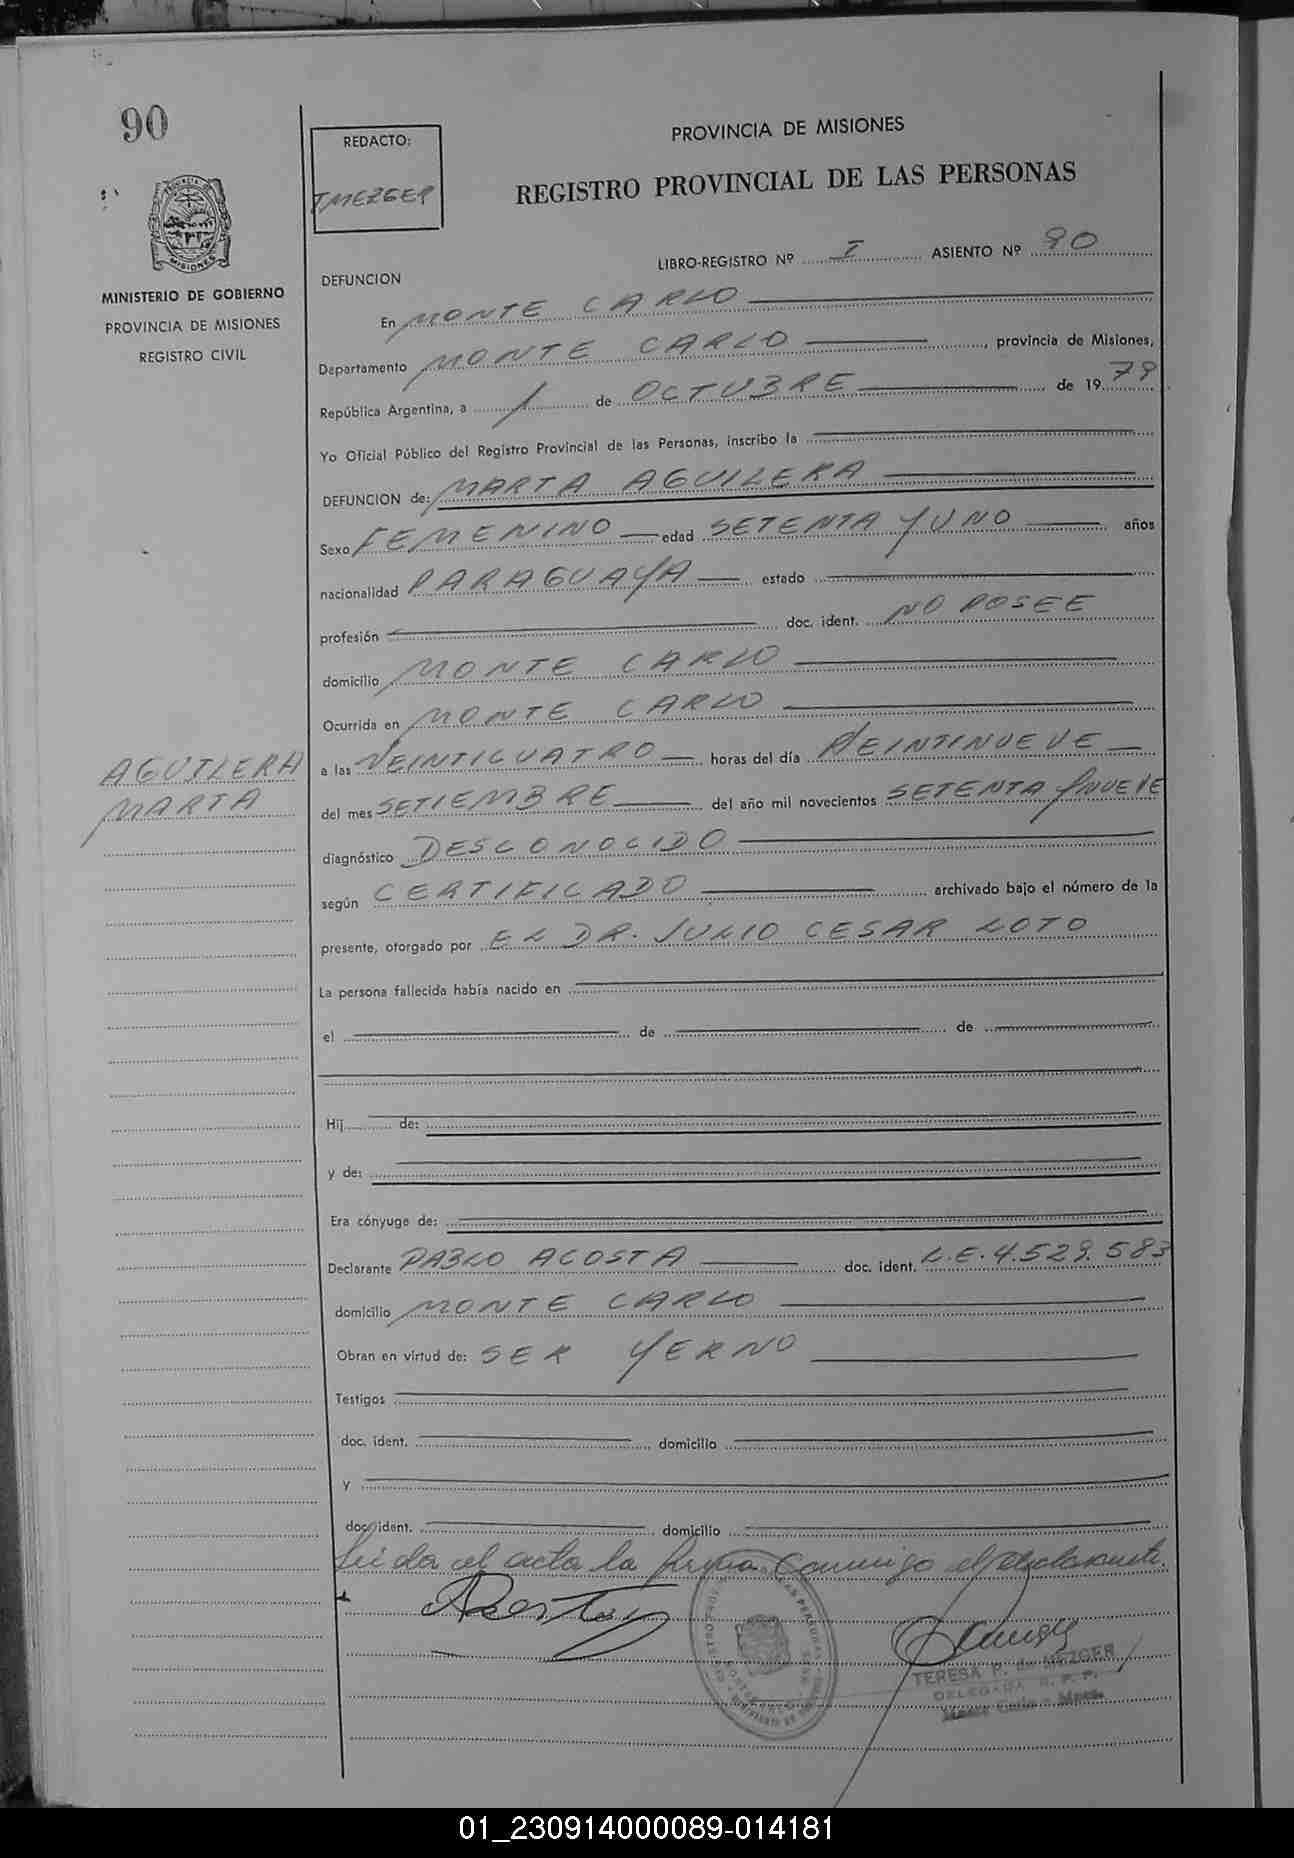 90
REDACTO:
TMEZGER
PROVINCIA DE MISIONES
REGISTRO PROVINCIAL DE LAS PERSONAS
MISIONES
MINISTERIO DE GOBIERNO
PROVINCIA DE MISIONES
REGISTRO CIVIL
LIBRO-REGISTRO Nº I ASIENTO Nº 90
DEFUNCION
En MONTE CARLO
Departamento MONTE CARLO, provincia de Misiones,
República Argentina, a 1 de OCTUBRE de 1979
Yo Oficial Público del Registro Provincial de las Personas, inscribo la
DEFUNCION de: MARTA AGUILERA
Sexo FEMENINO edad SETENTA Y UNO años
nacionalidad PARAGUAYA estado
profesión doc. ident. NO POSEE
domicilio MONTE CARLO
Ocurrida en MONTE CARLO
AGUILERA
MARTA
a las VEINTICUATRO horas del día VEINTINUEVE
del mes SETIEMBRE del año mil novecientos SETENTA Y NUEVE
diagnóstico DESCONOCIDO
según CERTIFICADO archivado bajo el número de la
presente, otorgado por EL DR. JULIO CESAR LOTO
La persona fallecida había nacido en
el de de
Hij de:
y de:
Era cónyuge de:
Declarante PABLO ACOSTA doc. ident. L.E. 4.529.583
domicilio MONTE CARLO
Obran en virtud de: SER YERNO
Testigos
doc. ident. domicilio
y
doc. ident. domicilio
Leida el acta la firma conmigo el declarante.
Acosta
TERESA P. de MEZGER
DELEGADA R. P. P.
Monte Carlo - Mnes.
01_230914000089-014181